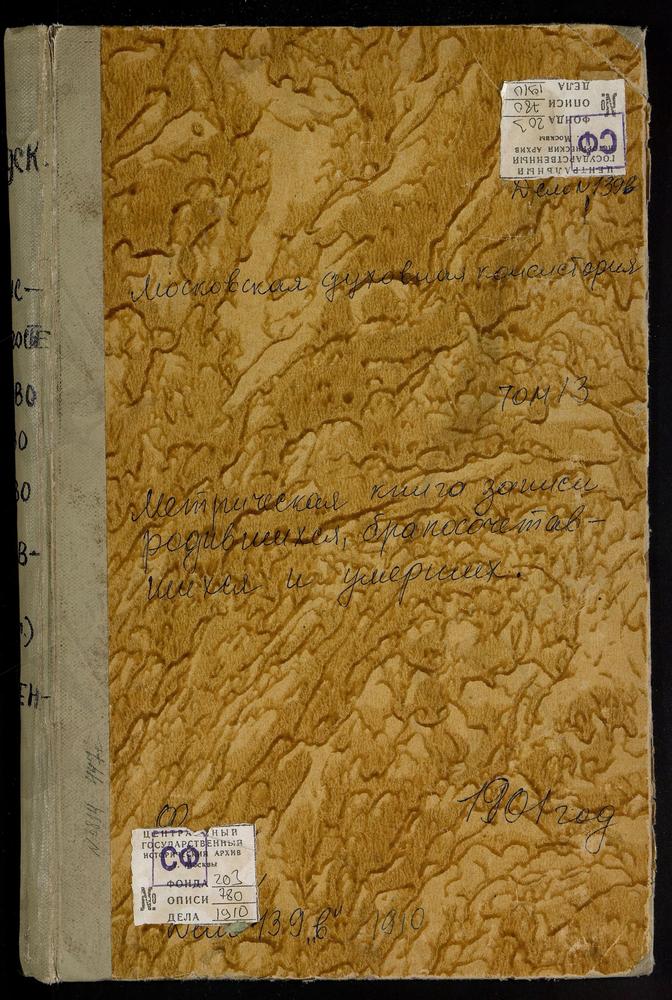 ЦЕНТРАЛЬНЫЙ
ГОСУДАРСТВЕННЫЙ
ИСТОРИЧЕСКИЙ АРХИВ
Москвы
СФ
ФОНДА 203
№ ОПИСИ 780
ДЕЛА 1910
Дело № 139в
Московская духовная консистория
том 13
Метрическая книга записи
родившихся, бракосочетав-
шихся и умерших.
1901 год
ЦЕНТРАЛЬНЫЙ
ГОСУДАРСТВЕННЫЙ
ИСТОРИЧЕСКИЙ АРХИВ
Москвы
СФ
ФОНДА 203
№ ОПИСИ 780
ДЕЛА 1910
Дело 139 „в“ 1910